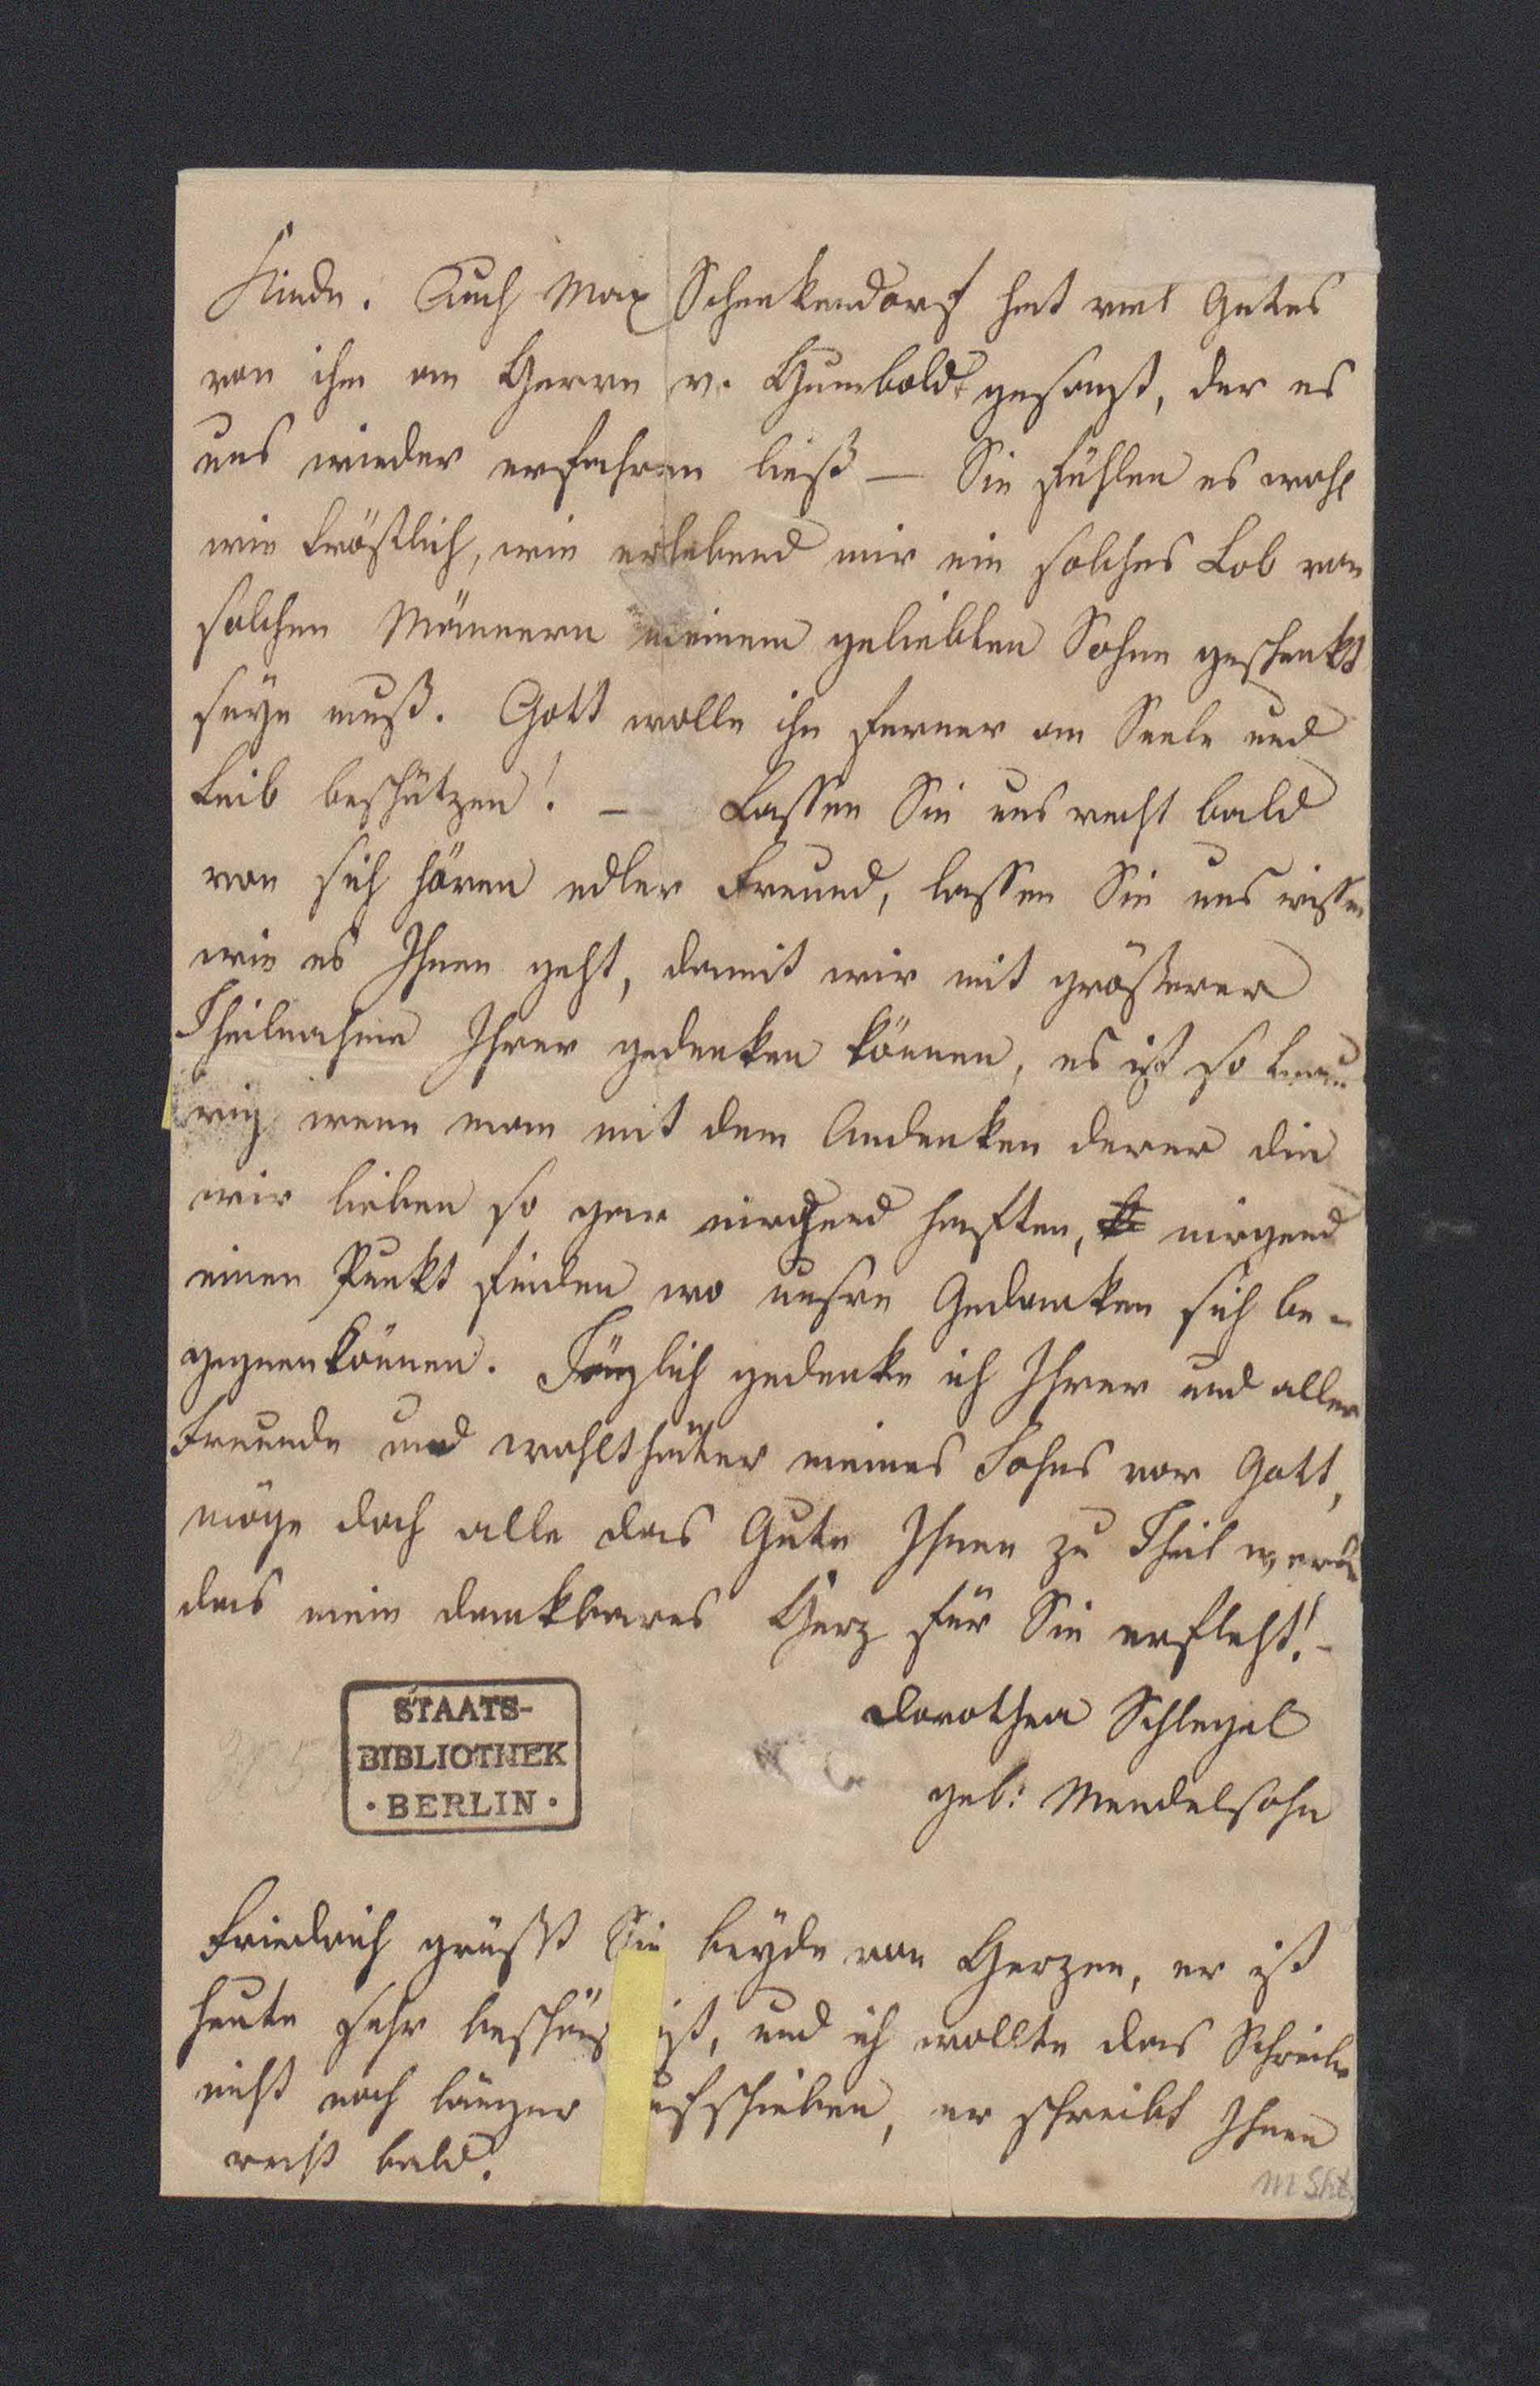 Kinde. Auch Max Schenkendorf hat viel Gutes
von ihm an Herrn v. Humboldt gesagt, der es
uns wieder erfahren ließ — Sie fühlen es wohl
wie tröstlich, wie erhebend mir ein solches Lob von
solchen Männern meinem geliebten Sohne geschenkt
seyn muß. Gott wolle ihn ferner an Seele und
Leib beschützen! — Lassen Sie uns recht bald
von sich hören edler Freund, lassen Sie uns wissen
wie es Ihnen geht, damit wir mit größerer
Theilnahme Ihrer gedenken können, es ist so trau
rig wenn man mit dem Andenken derer die
wir lieben so gar nirgend haften, nirgend
einen Punkt finden wo unsre Gedanken sich be-
gegnen können. Täglich gedenke ich Ihrer und aller
Freunde und wohlthäter meines Sohns vor Gott,
möge doch alle das Gute Ihnen zu Theil werden
das mein dankbares Herz für Sie erfleht! -
Dorothea Schlegel
geb: Mendelsohn
STAATS-
BIBLIOTHEK
· BERLIN ·
Friedrich grüßt Sie beyde von Herzen, er ist
heute sehr beschäf igt, und ich wollte das Schreiben
nicht noch länger ufschieben, er schreibt Ihnen
recht bald.